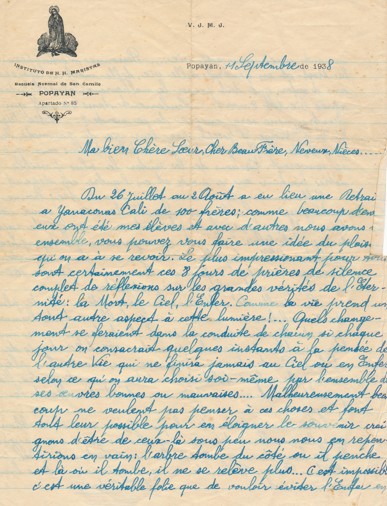 V. J. M. J.
INSTITUTO DE H. H. MARISTAS
Escuela Normal de San Camilo
POPAYAN
Apartado Nº 85
Popayan, 4 Septembre de 1938
Ma bien Chère Sœur, Cher Beau Frère, Neveux, Nièces....
Du 26 Juillet au 2 Août a eu lieu une Retrai
a Yanaconas Cali de 100 frères; comme beaucoup d'en
eux ont été mes élèves et avec d'autres nous avons
ensemble, vous pouvez vous faire une idée du plais
qu'on a à se revoir. Le plus impressionant pour
sont certainement ces 8 jours de prières de silence
complet de réflexions sur les grandes vérités de l'Eter
nité: la Mort, le Ciel, l'Enfer. Comme la vie prend un
tout autre aspect à cette lumière!... Quels change-
ment se feraient dans la conduite de chacun si chaque
jour on consacrait quelques instants à la pensée de
l'autre Vie qui ne finira jamais au Ciel ou en Enfer
selon ce qu'on aura choisi soi-même par l'ensemble d
ses œuvres bonnes ou mauvaises.... Malheureusement bea
coup ne veulent pas penser à ces choses et font
tout leur possible pour en éloigner le souvenir crai
gnons d'être de ceux-là sous peu nous nous en repen
tirions en vain: l'arbre tombe du côté où il penche
et là où il tombe, il ne se relève plus... C'est impossib
c'est une véritable folie que de vouloir éviter l'Enfer en